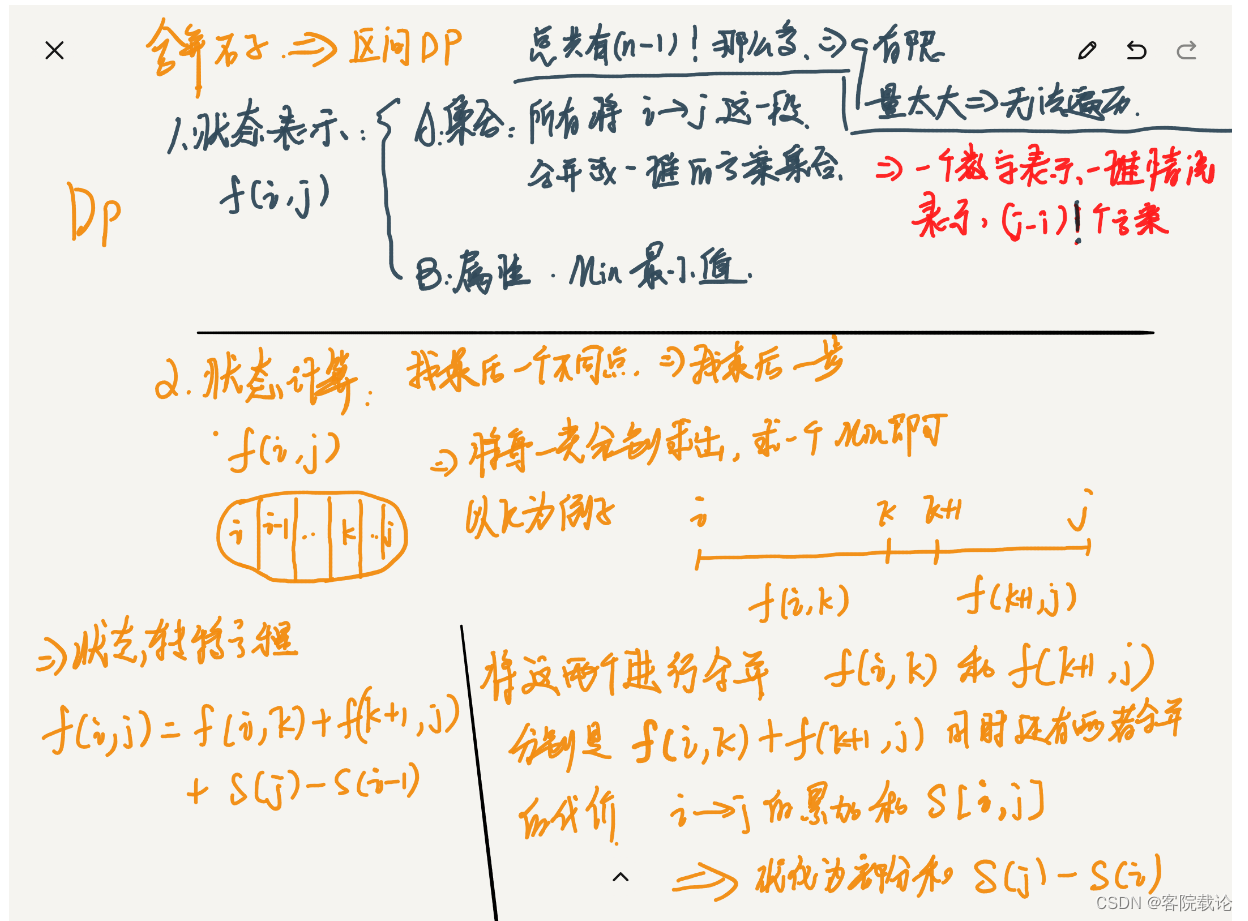 合并石子 ⇒ 区间DP
总共有(n-1)！那么多、⇒ 有限
量太大 ⇒ 无法遍历.
DP
1.状态表示、:
f(i,j)
A:集合: 所有将 i→j 这一段
合并成一堆的方案集合.
⇒ 一个数字表示、一堆情况
表示, (j-i)！个方案
B:属性 · Min 最小值.
2.状态计算: 找最后一个不同点. ⇒ 找最后一步
f(i,j)
⇒ 将每一类分别求出, 求一个Min即可
i i-1 .. k .. j
以k为例子
i k k+1 j
f(i,k) f(k+1,j)
⇒ 状态转移方程
f(i,j) = f(i,k) + f(k+1,j)
+ S(j) - S(i-1)
将这两个进行合并 f(i,k) 和 f(k+1,j)
分别是 f(i,k) + f(k+1,j) 同时还有两者合并
的代价. i→j 的累加和 S[i,j]
⇒ 优化为部分和 S(j) - S(i)
CSDN @客院载论